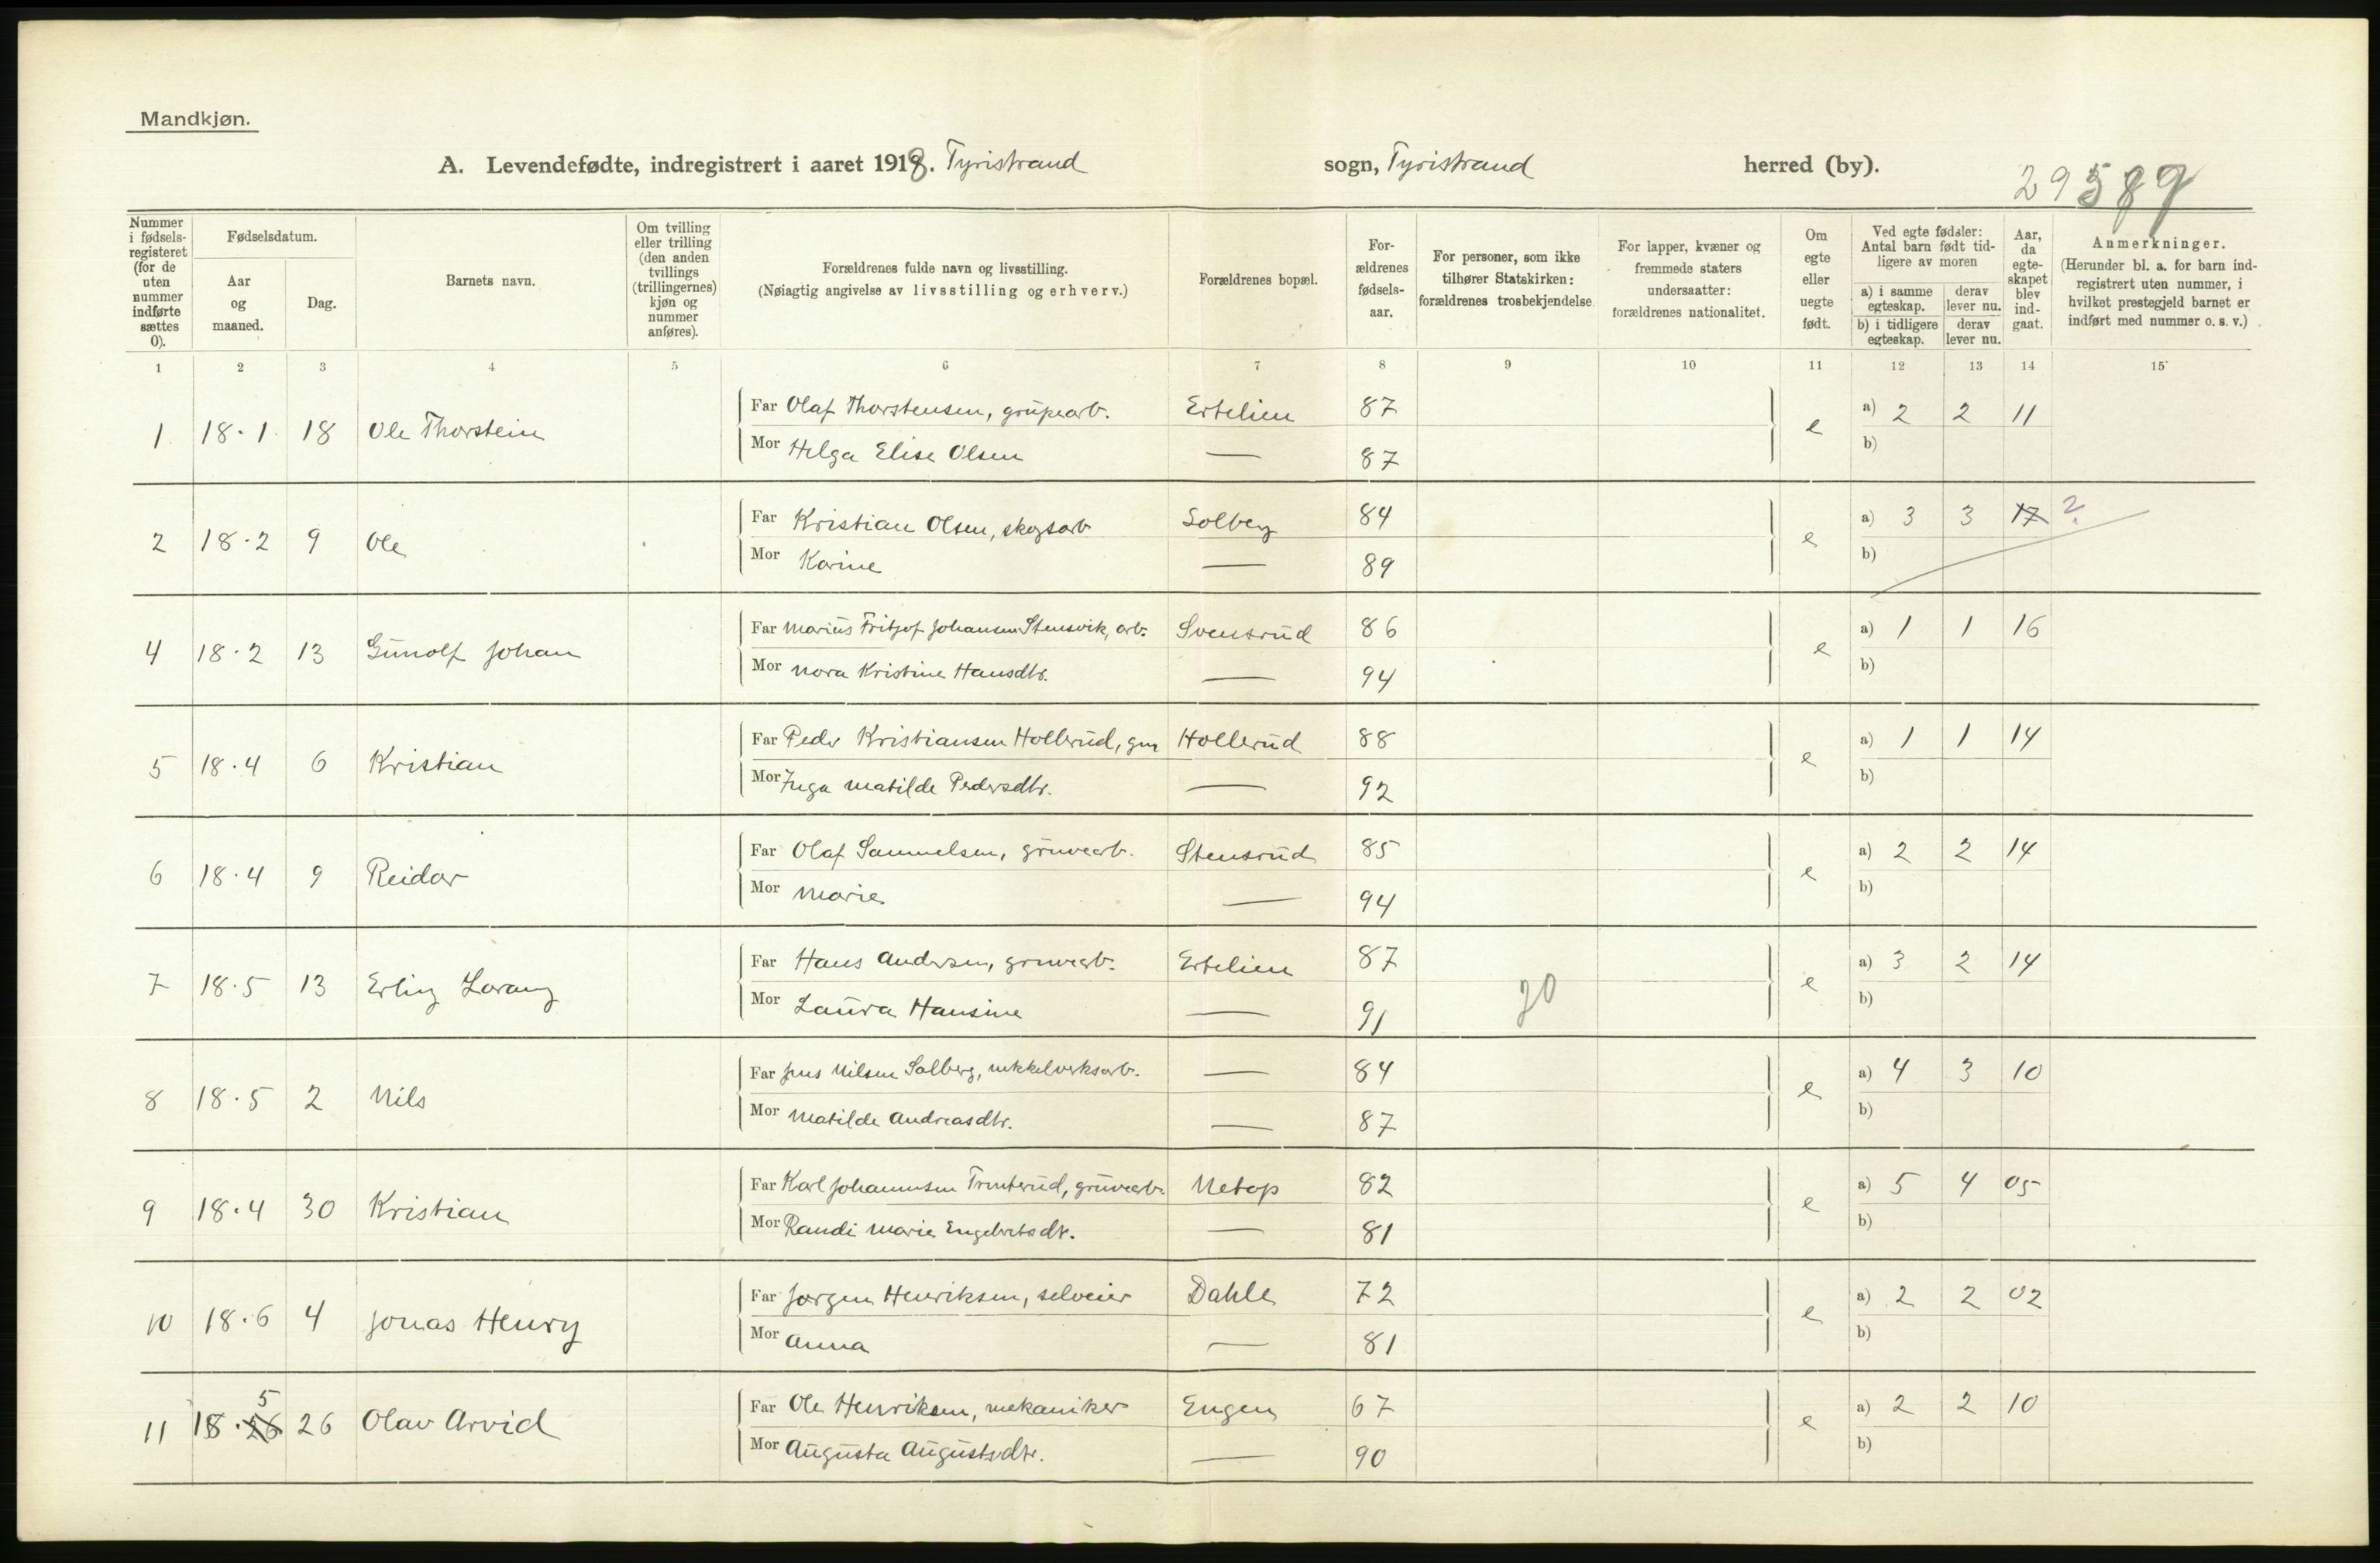 Mandkjøn.
A. Levendefødte, indregistrert i aaret 1918. Tyristrand sogn, Tyristrand herred (by).
29589
Nummer i fødselsregisteret (for de uten nummer indførte sættes 0).
Fødselsdatum.
Aar og maaned.
Dag.
Barnets navn.
Om tvilling eller trilling (den anden tvillings (trillingernes) kjøn og nummer anføres).
Forældrenes fulde navn og livsstilling.
(Nøiagtig angivelse av livsstilling og erhverv.)
Forældrenes bopæl.
Forældrenes fødselsaar.
For personer, som ikke tilhører Statskirken: forældrenes trosbekjendelse
For lapper, kvæner og fremmede staters undersaatter: forældrenes nationalitet.
Om egte eller uegte født.
Ved egte fødsler: Antal barn født tidligere av moren
a) i samme egteskap. derav lever nu.
b) i tidligere egteskap. derav lever nu.
Aar, da egteskapet blev indgaat.
Anmerkninger.
(Herunder bl. a. for barn indregistrert uten nummer, i hvilket prestegjeld barnet er indført med nummer o. s. v.)
1 2 3 4 5 6 7 8 9 10 11 12 13 14 15
1 18·1 18 Ole Thorstein Far Olaf Thorstensen, grupearb. Ertelien 87 e a) 2 2 11
Mor Helga Elise Olsen — 87 b)
2 18·2 9 Ole Far Kristian Olsen, skogsarb Solberg 84 e a) 3 3 17 ?
Mor Karine — 89 b)
4 18·2 13 Gunolf Johan Far Marius Fritjof Johansen Stensvik, arb. Svensrud 86 e a) 1 1 16
Mor Nora Kristine Hansdtr. — 94 b)
5 18·4 6 Kristian Far Peder Kristiansen Hollerud, Hollerud 88 e a) 1 1 14
Mor Inga Matilde Pedersdtr. — 92 b)
6 18·4 9 Reidar Far Olaf Samuelsen, gruvearb. Stensrud 85 e a) 2 2 14
Mor Marie — 94 b)
7 18·5 13 Erling Lorang Far Hans Andersen, gruvearb. Ertelien 87 e a) 3 2 14
Mor Laura Hansine — 91 b)
20
8 18·5 2 Nils Far Jens Nilsen Solberg, nikkelverksarb. — 84 e a) 4 3 10
Mor Matilde Andreasdtr. — 87 b)
9 18·4 30 Kristian Far Karl Johannesen Trulserud, gruvearb. Utetop 82 e a) 5 4 05
Mor Randi Marie Engebretsdtr. — 81 b)
10 18·6 4 Jonas Henry Far Jørgen Henriksen, selveier Dahle 72 e a) 2 2 02
Mor Anna — 81 b)
5
11 18·26 26 Olav Arvid Far Ole Henriksen, mekaniker Engen 67 e a) 2 2 10
Mor Augusta Augustsdtr. — 90 b)